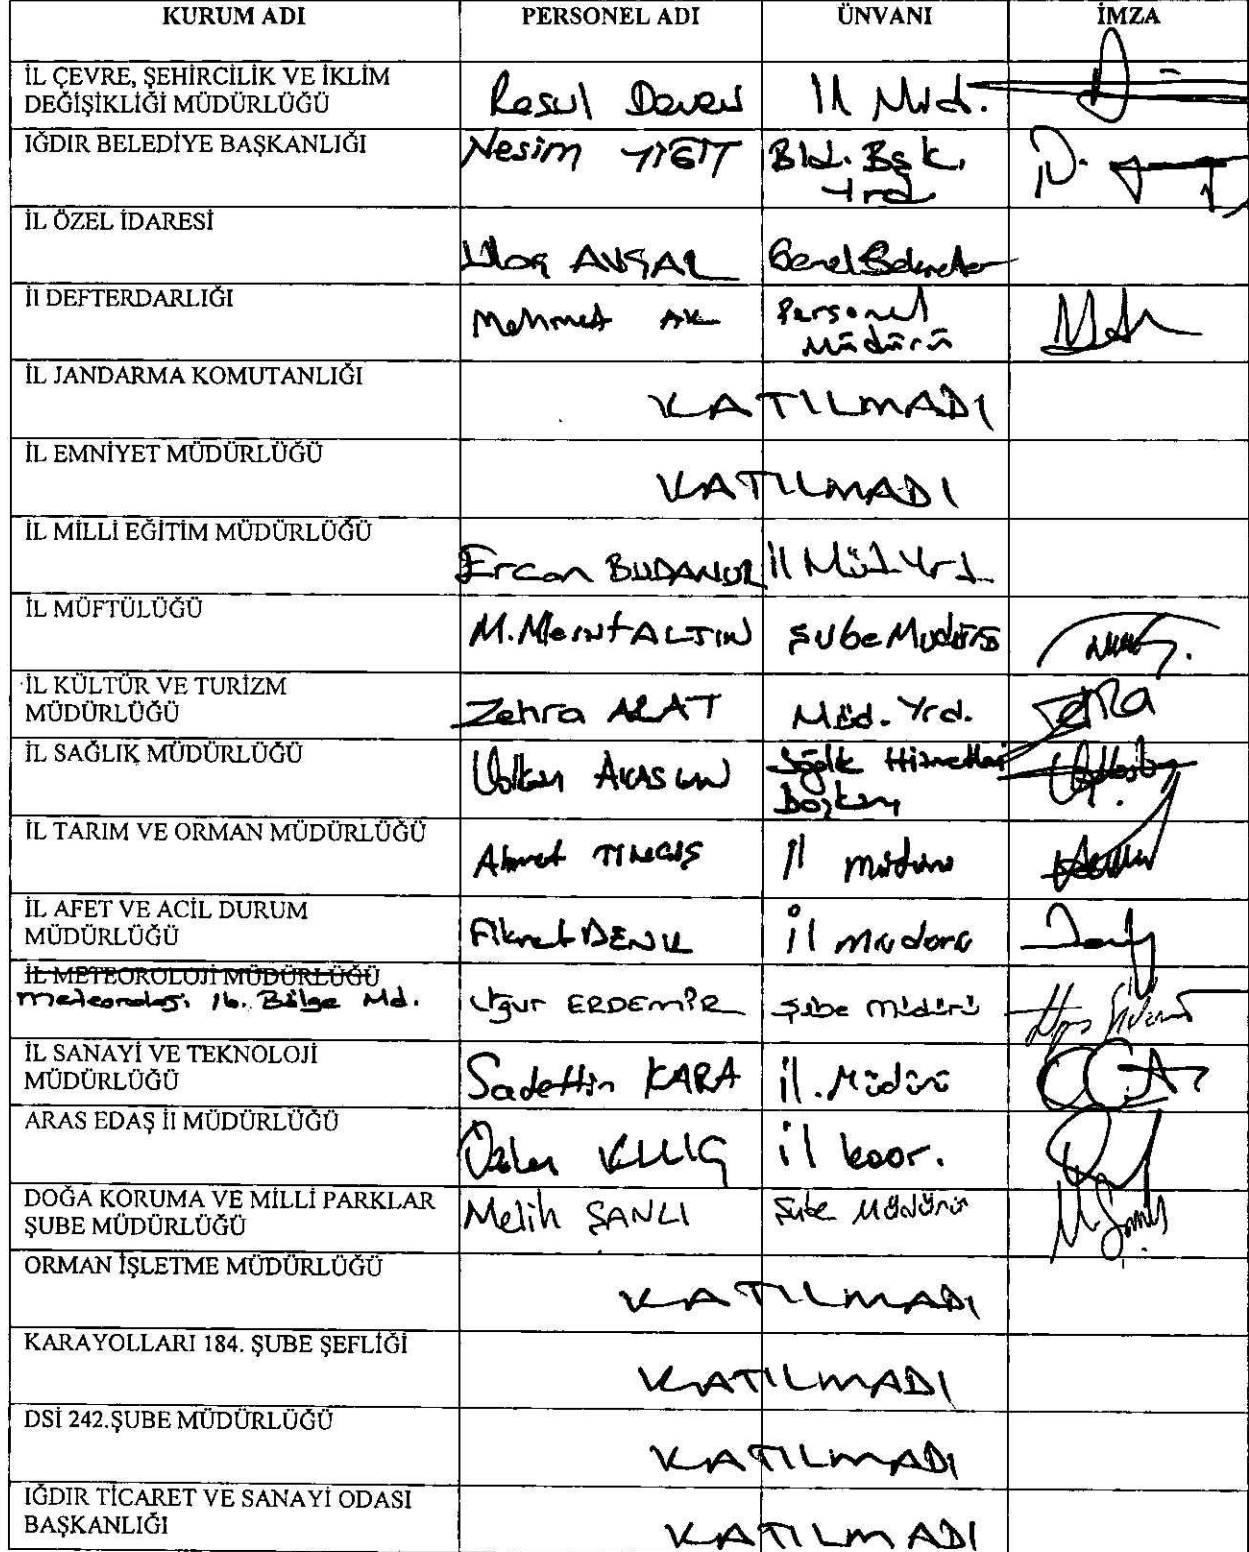 KURUM ADI PERSONEL ADI ÜNVANI İMZA
İL ÇEVRE, ŞEHİRCİLİK VE İKLİM
DEĞİŞİKLİĞİ MÜDÜRLÜĞÜ Resul İl Müd.
IĞDIR BELEDİYE BAŞKANLIĞI Nesim YİĞİT Bld. Bşk.
Yrd.
İL ÖZEL İDARESİ
AVŞAR Genel Sekreter
İl DEFTERDARLIĞI Mehmet AK Personel
Müdürü
İL JANDARMA KOMUTANLIĞI
KATILMADI
İL EMNİYET MÜDÜRLÜĞÜ
KATILMADI
İL MİLLİ EĞİTİM MÜDÜRLÜĞÜ
Ercan BUDANUR İl Müd. Yrd.
İL MÜFTÜLÜĞÜ
M. ALTIN Şube Müdürü
İL KÜLTÜR VE TURİZM
MÜDÜRLÜĞÜ Zehra Müd. Yrd.
İL SAĞLIK MÜDÜRLÜĞÜ Volkan Sağlık Hizmetleri
Başkanı
İL TARIM VE ORMAN MÜDÜRLÜĞÜ
Ahmet il müdürü
İL AFET VE ACİL DURUM
MÜDÜRLÜĞÜ Fikret il müdürü
İL METEOROLOJİ MÜDÜRLÜĞÜ
Meteoroloji 16. Bölge Md. Uğur ERDEMİR Şube müdürü
İL SANAYİ VE TEKNOLOJİ
MÜDÜRLÜĞÜ Sadettin KARA İl. Müdürü
ARAS EDAŞ İl MÜDÜRLÜĞÜ
KILIÇ il koor.
DOĞA KORUMA VE MİLLİ PARKLAR
ŞUBE MÜDÜRLÜĞÜ Melih ŞANLI Şube Müdürü
ORMAN İŞLETME MÜDÜRLÜĞÜ
KATILMADI
KARAYOLLARI 184. ŞUBE ŞEFLİĞİ
KATILMADI
DSİ 242.ŞUBE MÜDÜRLÜĞÜ
KATILMADI
IĞDIR TİCARET VE SANAYİ ODASI
BAŞKANLIĞI KATILMADI